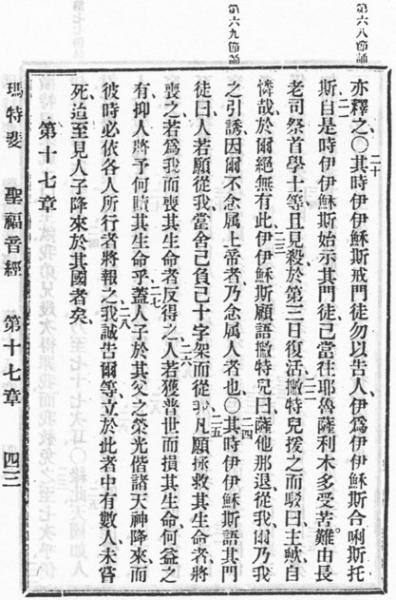 第六八節誦
第六九節誦
亦釋之、〇二十其時伊伊穌斯戒門徒勿以告人、伊爲伊伊穌斯合唎斯托
斯、二一自是時伊伊穌斯始示其門徒、己當往耶魯薩利木多受苦難、由長
老司祭首學士等且見殺、於第三日復活、二二撇特兒援之而駁曰、主、自
憐哉、於爾絕無有此、二三伊伊穌斯顧語撇特兒曰、薩他那、退從我、爾乃我
之引誘、因爾不念属上帝者、乃念属人者也、〇二四其時伊伊穌斯語其門
徒曰、人若願從我、當舍己、負己十字架而從我、二五凡願拯救其生命者、將
喪之、若爲我而喪其生命者、反得之、二六人若獲普世、而損其生命、何益之
有、抑人將予何贖其生命乎、二七蓋人子於其父之榮光、偕諸天神降來、而
彼時必依各人所行者將報之、二八我誠告爾等、立於此者中有數人、未嘗
死、迨至見人子降來於其國者矣、
第十七章
瑪特斐 聖福音經 第十七章 四三